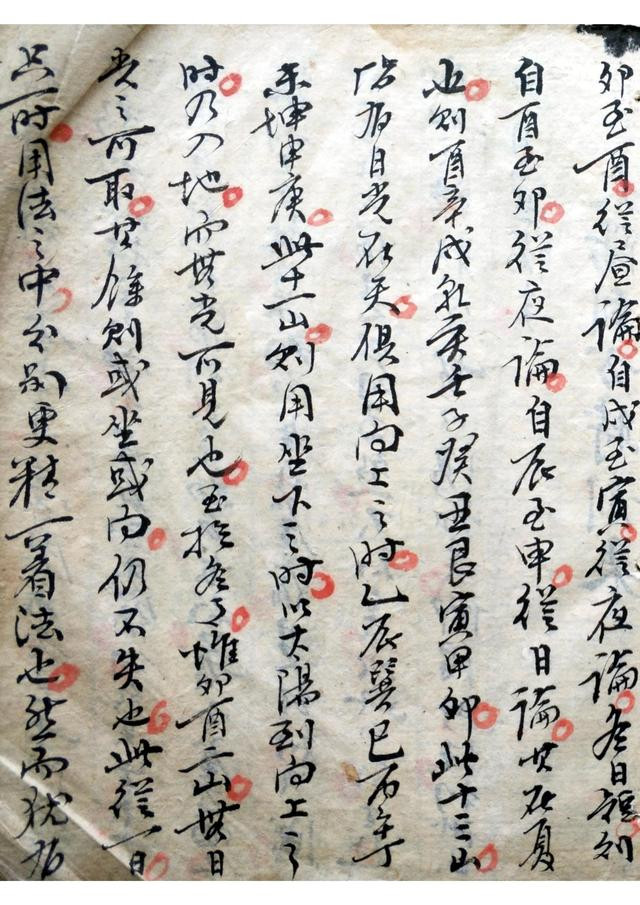 卯至酉從昼論自戌至寅從夜論冬日短則
自酉至卯從夜論自辰至申從日論其在夏
也則酉辛戌乾亥壬子癸丑艮寅甲卯此十三山
皆有日光在天俱用向上之時乙辰巽巳丙午丁
未坤申庚此十一山則用坐下之時以太陽到向上之
時乃入地而無光可見也至於冬惟卯酉二山無日
光之可取其餘則或坐或向仍不失也此從一日
只一时用法之中分别更精一着法也然而犹有